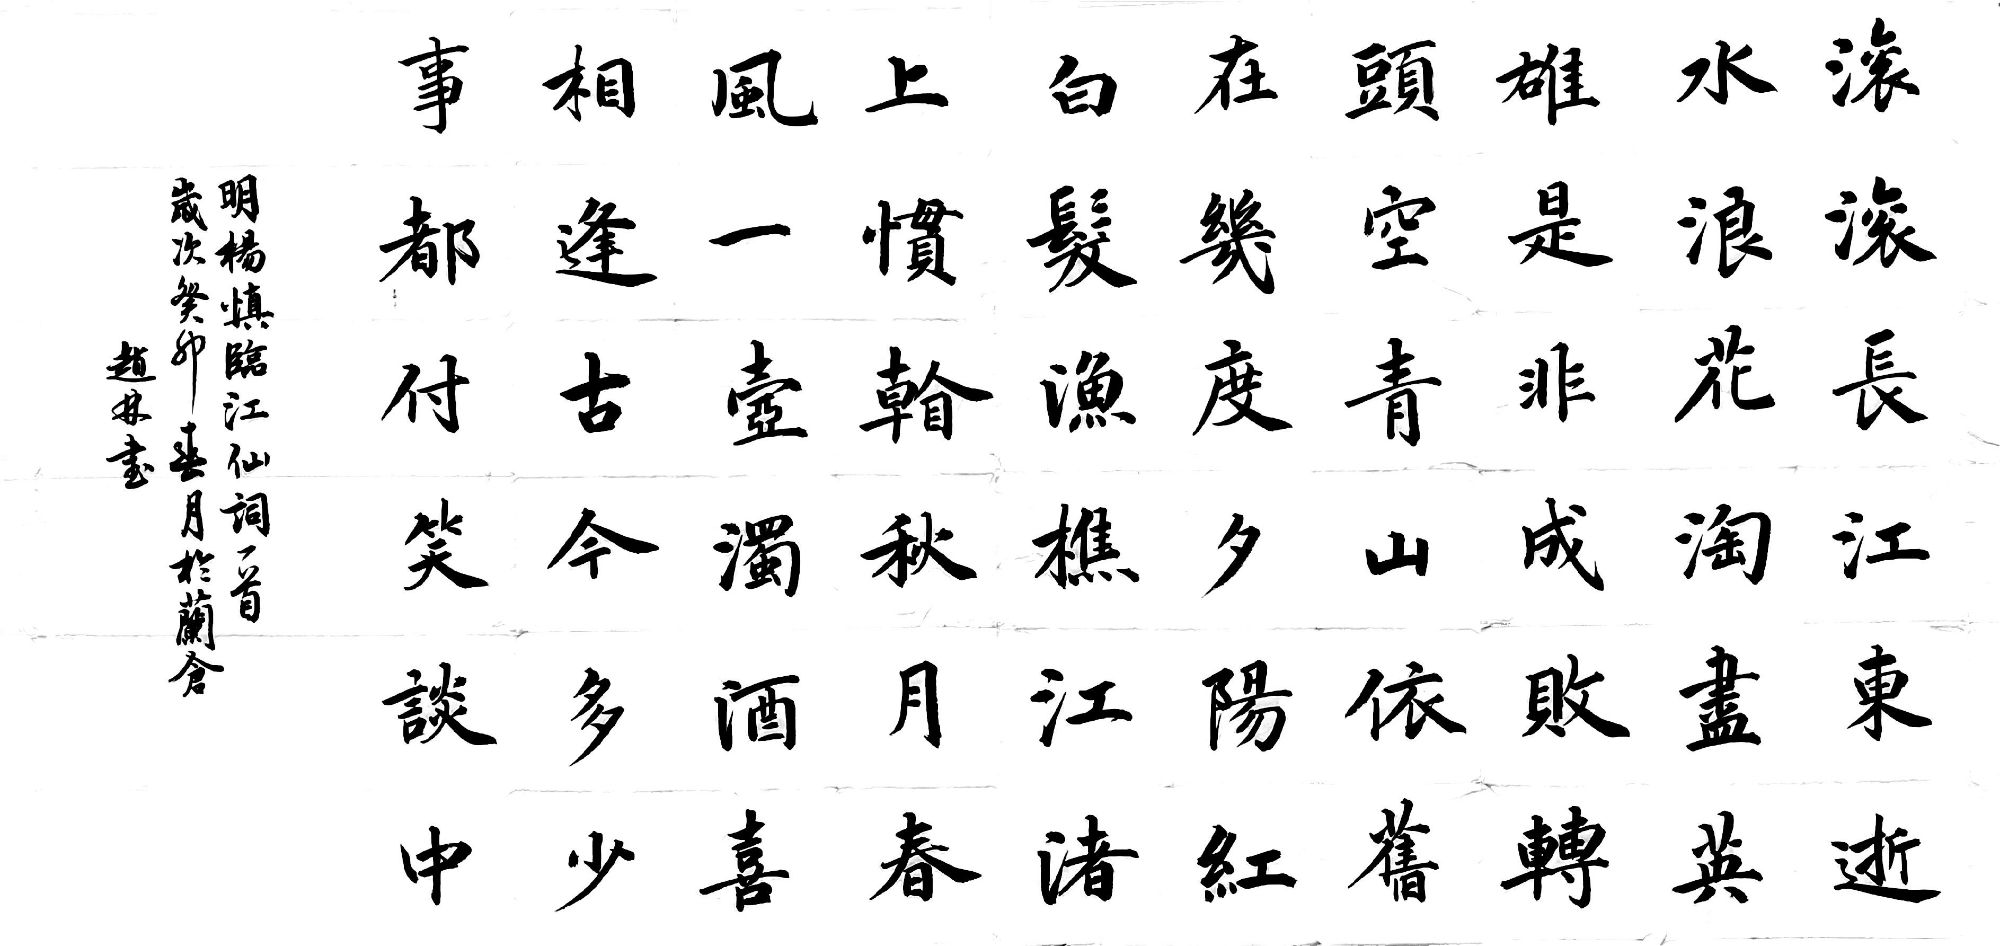 滾滾長江東逝
水浪花淘盡英
雄是非成敗轉
頭空青山依舊
在幾度夕陽紅
白髮漁樵江渚
上慣看秋月春
風一壺濁酒喜
相逢古今多少
事都付笑談中
明楊慎臨江仙詞一首
歲次癸卯春月於蘭倉
趙林書